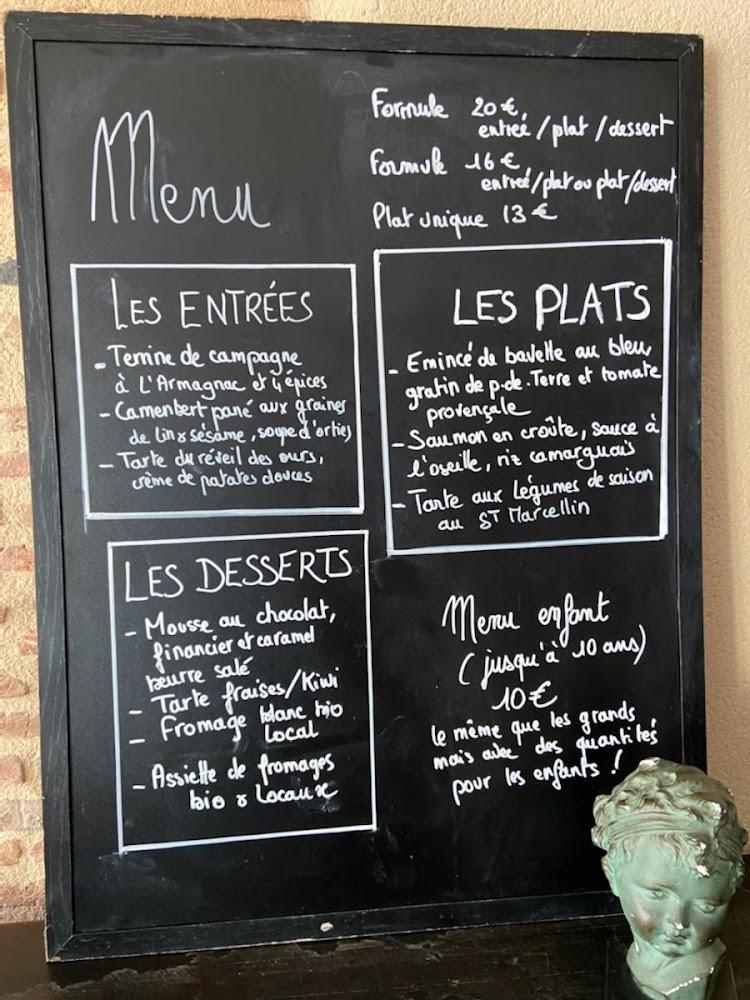 Menu
Formule 20€
entreé/plat/dessert
Formule 16€
entreé/plat ou plat/dessert
Plat unique 13€
LES ENTRÉES
- Terrine de campagne
à L'Armagnac et 4 épices
- Camembert pané aux graines
de lin & sésame, soupe d'orties
- Tarte du réveil des ours,
crème de patates douces
LES PLATS
- Emincé de bavette au bleu,
gratin de p.de.Terre et tomate
provençale
- Saumon en croûte, sauce à
l'oseille, riz camarguais
- Tarte aux légumes de saison
au ST Marcellin
LES DESSERTS
- Mousse au chocolat,
financier et caramel
beurre salé
- Tarte fraises/Kiwi
- Fromage blanc bio
Local
- Assiette de fromages
bio & Locaux
Menu enfant
(jusqu'à 10 ans)
10€
le même que les grands
mais avec des quantités
pour les enfants!